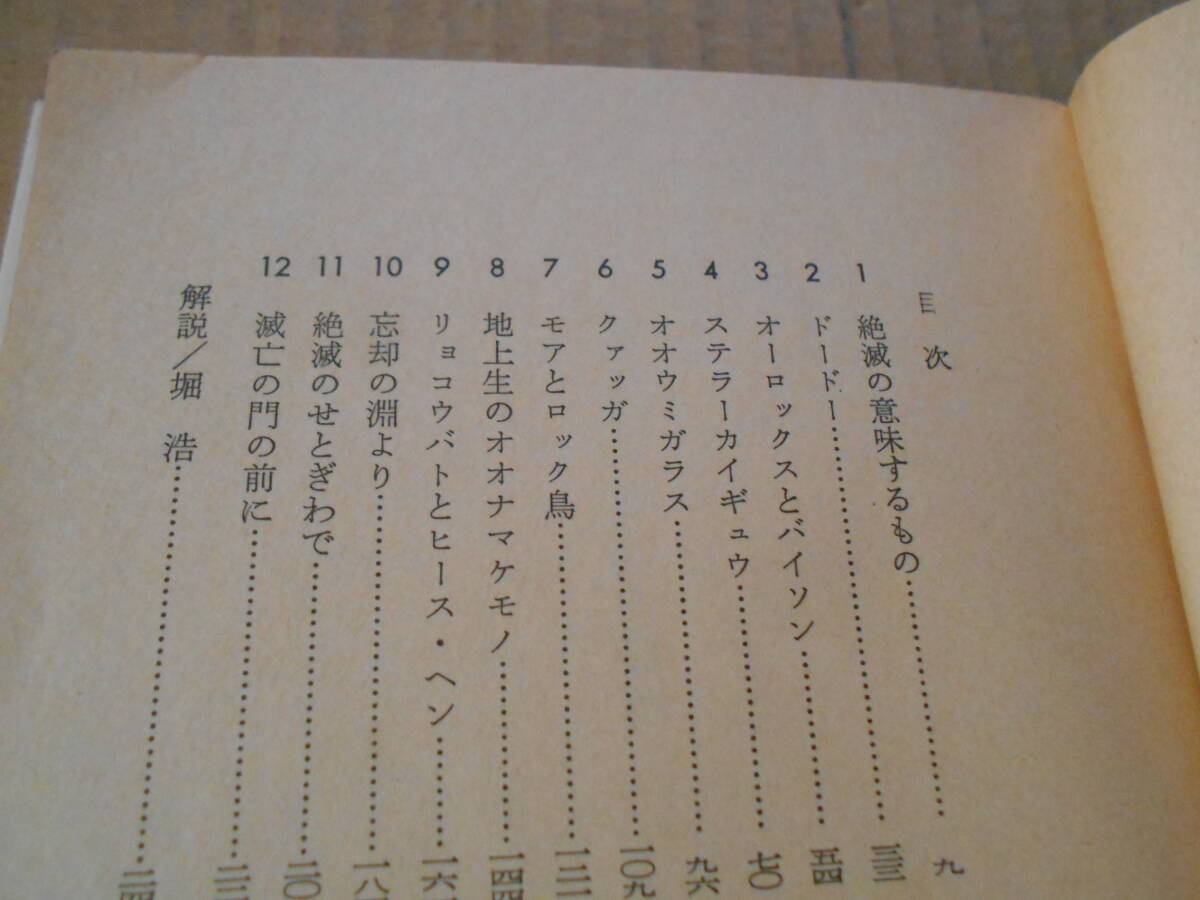 目次
1 絶滅の意味するもの……………九
2 ドードー……………三三
3 オーロックスとバイソン……………五四
4 ステラーカイギュウ……………七〇
5 オオウミガラス……………九六
6 クァッガ……………一〇九
7 モアとロック鳥……………
8 地上生のオオナマケモノ……………一四四
9 リョコウバトとヒース・ヘン……………
10 忘却の淵より……………
11 絶滅のせとぎわで……………
12 滅亡の門の前に……………
解説／堀 浩……………